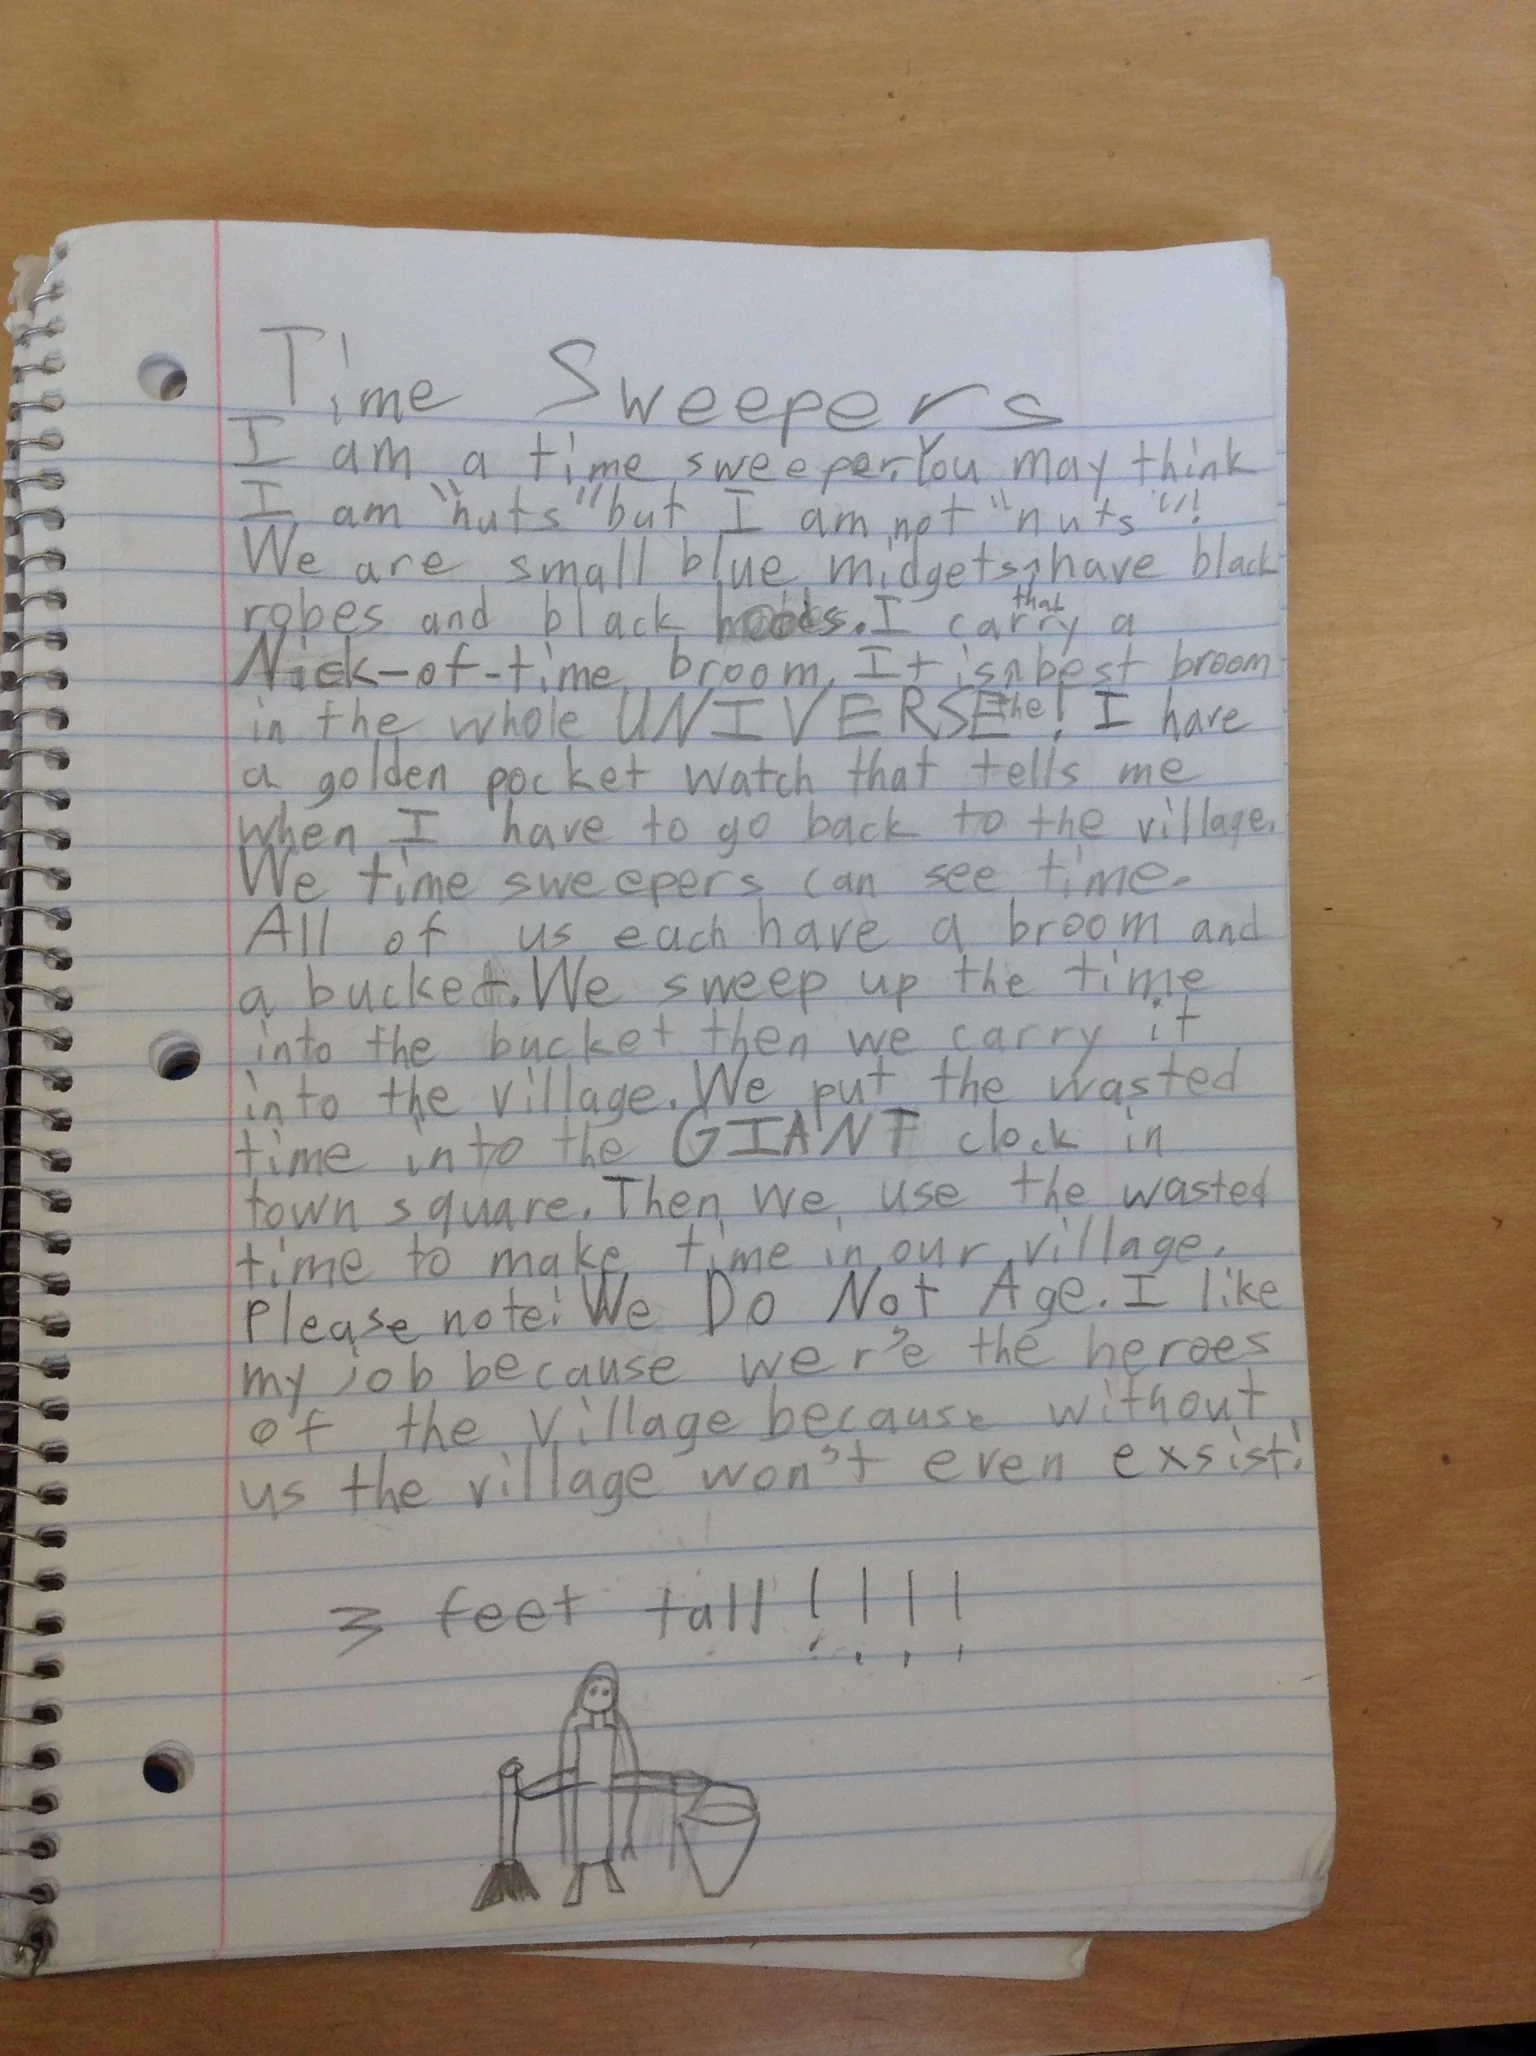 Time Sweepers
I am a time sweeper. You may think
I am "nuts" but I am not "nuts"!
We are small blue midgets that have black
robes and black hoods. I carry a
Nick-of-time broom. It is the best broom
in the whole UNIVERSE! I have
a golden pocket watch that tells me
when I have to go back to the village.
We time sweepers can see time.
All of us each have a broom and
a bucket. We sweep up the time
into the bucket then we carry it
into the village. We put the wasted
time into the GIANT clock in
town square. Then we use the wasted
time to make time in our village.
Please note: We Do Not Age. I like
my job because wer'e the heroes
of the village because without
us the village won't even exsist!
3 feet tall!!!!